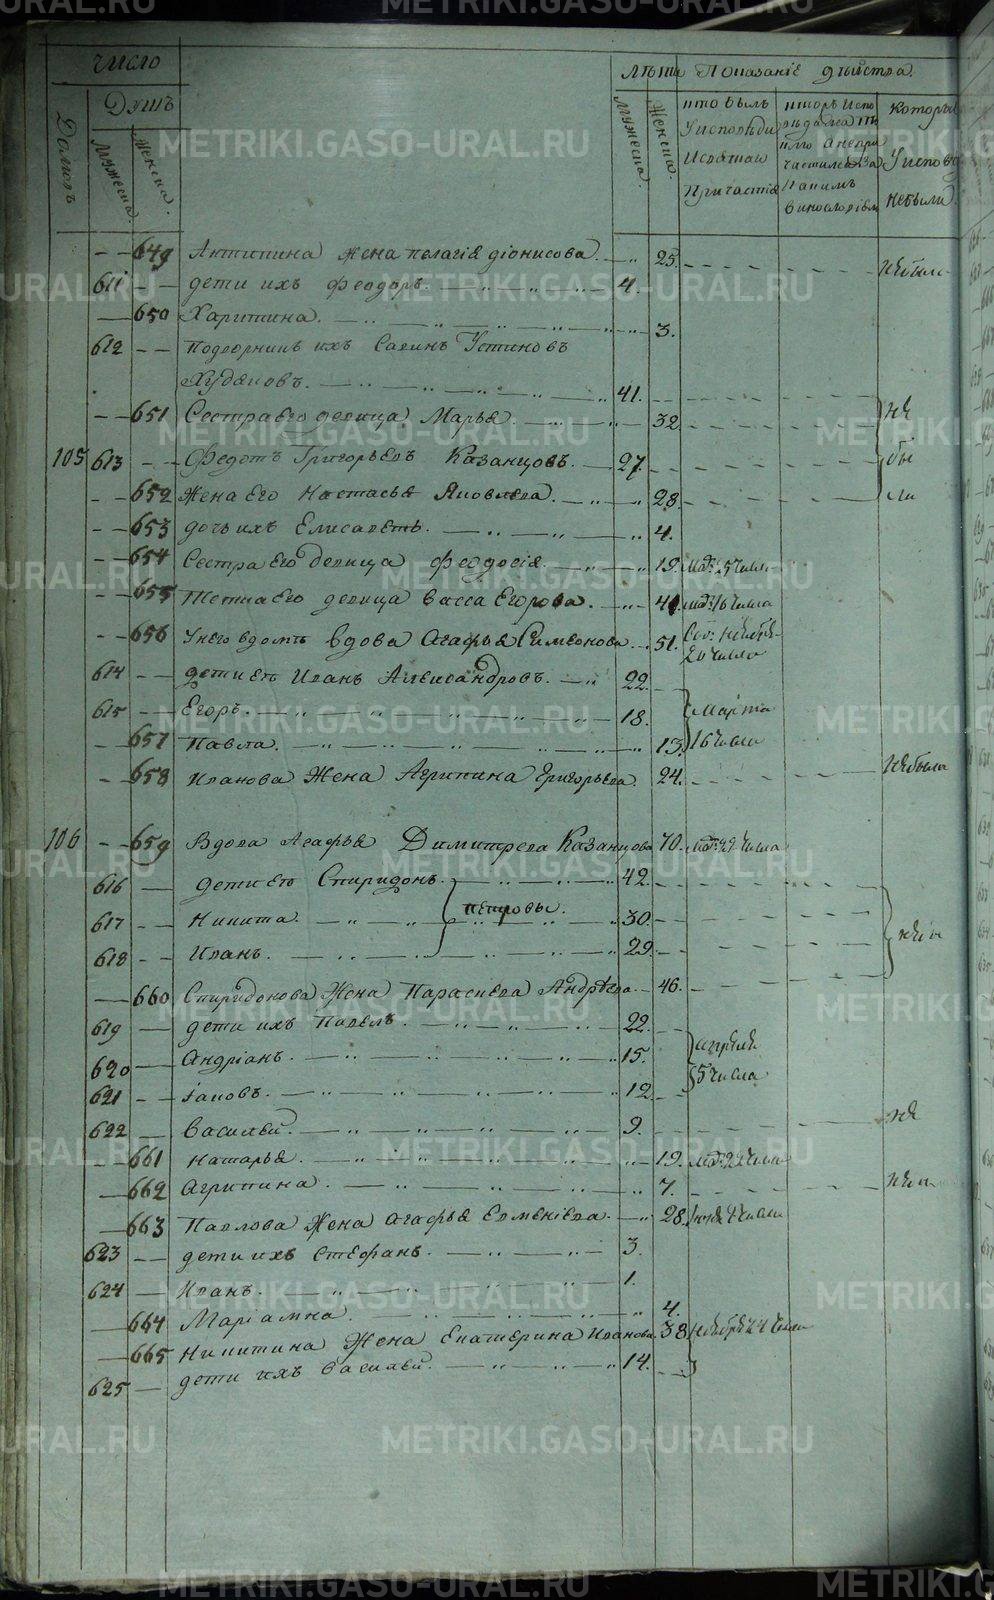 число
Лѣта Показаніе дѣйства.
Домовъ
Душъ
Мужеска.
Женска.
Мужеска.
Женска.
кто былъ
Уисповѣди
Исвятаго
Причастія
которы
Уиспов
небыли.
— — 649 Антипина жена пелагія діонисова. 25. небыла
611 — — дети ихъ Феодоръ. 4.
— 650 Харитина. 3.
612 — — Подворникъ ихъ Савинъ Устиновъ
Худяковъ. 41.
— — 651 Сестра его девица Марья. 32 не
105 613 — — Федотъ Григорьевъ Казанцовъ. 27. бы
— — 652 Жена Его Настасья Яковлева. 28. ли
— — 653 дочь ихъ Елисаветъ. 4.
— — 654 Сестра Его девица Феодосія. 19. мар: 25 числа
— — 655 Тетка Его девица Васса Егорова. 41 мар: 16 числа
— — 656 Унего вдомѣ вдова Агафья Симеонова. 51.
20 числа
614 — — дети Ея Иванъ Александровъ. 22.
615 — — Егоръ. 18. Марта
— — 657 Павла. 13. 16 числа
— — 658 Иванова Жена Агрипина Григорьева. 24. небыла
106 — — 659 Вдова Агафья Димитрева Казанцова 70. мар: 22 числа
616 — дети Ея Спиридонъ. 42.
617 — — Никита. Петровы. 30.
618 — — Иванъ. 29. небы
— 660 Спиридонова Жена Параскева Андрѣева 46.
619 — дети ихъ Павелъ. 22.
620 — Андріанъ. 15. апреля
621 — — Іаковъ. 12. 5 числа
622 — Василей. 9. не
— — 661 Наталья. 19. мар: 22 числа
— 662 Агрипина. 7.
— 663 Павлова Жена Агафья Ерменіева. 28.
623 — — дети ихъ Стефанъ. 3.
624 — Иванъ. 1.
— 664 Маріамна. 4.
— 665 Никитина Жена Екатерина Иванова. 38 ноября 24 числа
625 — дети ихъ Василей. 14.
METRIKI.GASO-URAL.RU